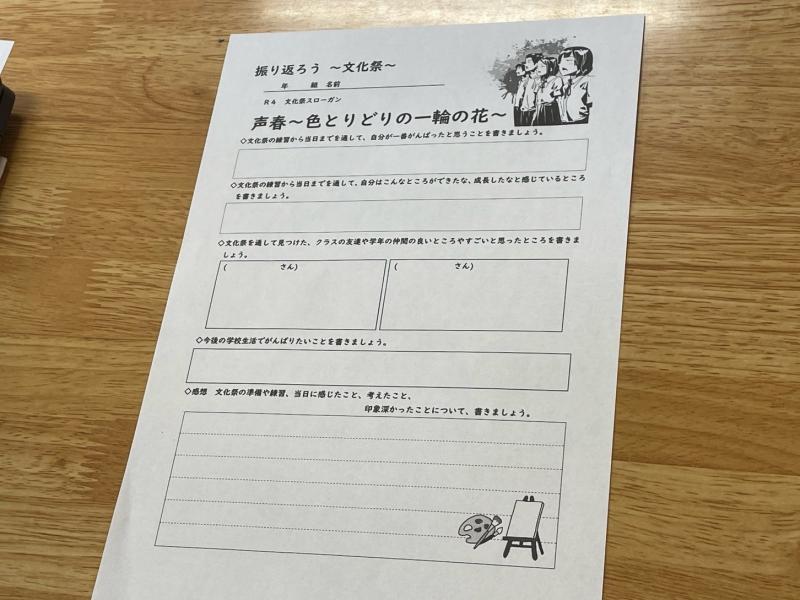 振り返ろう ～文化祭～
年 組 名前
R4 文化祭スローガン
声春～色とりどりの一輪の花～
◇文化祭の練習から当日までを通して、自分が一番がんばったと思うことを書きましょう。
◇文化祭の練習から当日までを通して、自分はこんなところができたな、成長したなと感じているところ
を書きましょう。
◇文化祭を通して見つけた、クラスの友達や学年の仲間の良いところやすごいと思ったところを書きま
しょう。
( さん)
( さん)
◇今後の学校生活でがんばりたいことを書きましょう。
◇感想 文化祭の準備や練習、当日に感じたこと、考えたこと、
印象深かったことについて、書きましょう。